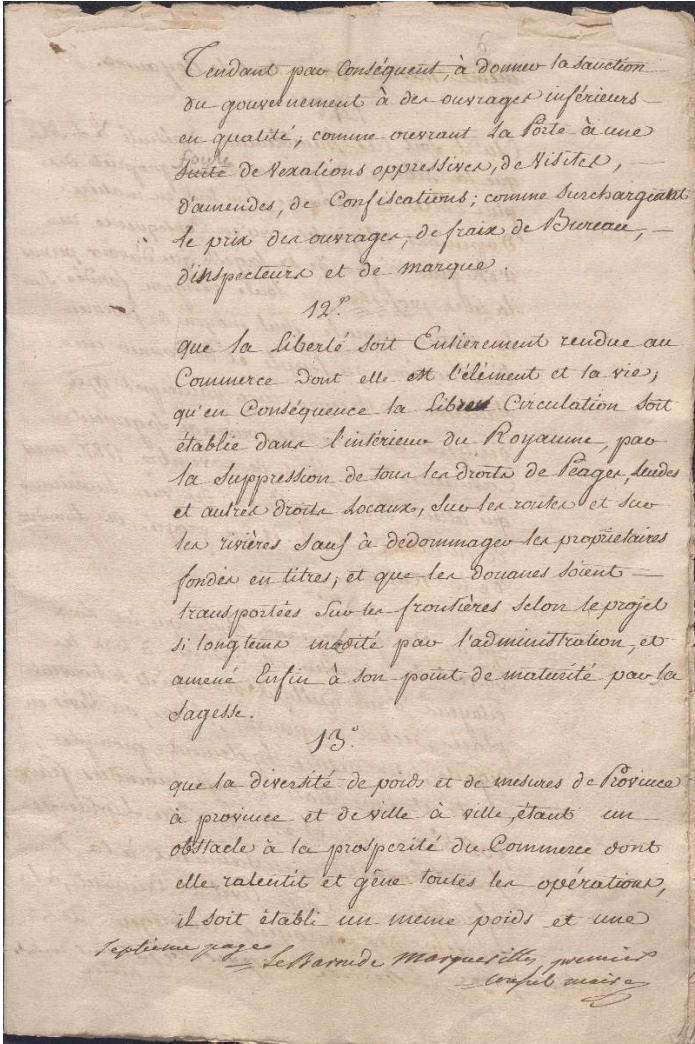 Tendant par Conséquent, à donner la sanction
du gouvernement à des ouvrages inférieurs
en qualité; comme ouvrant la Porte à une
foule
suite de vexations oppressives, de visites,
d'amendes, de Confiscations; comme surchargeant
le prix des ouvrages, de fraix de Bureau,
d'inspecteurs et de marque.
12°.
que la Liberté soit Entierement rendue au
Commerce dont elle est l'élément et la vie;
qu'en Conséquence la Libre Circulation soit
établie dans l'intérieur du Royaume, par
la suppression de tous les droits de Péages, Leudes
et autres droits Locaux, sur les routes et sur
les rivières sauf à dédommager les propriétaires
fondés en titres; et que les douanes soient
transportées sur les frontières selon le projet
si longtems médité par l'administration, et
amené Enfin à son point de maturité par sa
sagesse.
13°.
que la diversité de poids et de mesures de Province
à province et de ville à ville, étant un
obstacle à la prosperité du Commerce dont
elle ralentit et gêne toutes les opérations,
il soit établi un meme poids et une
septieme page
Le Baron de premier
consul maire